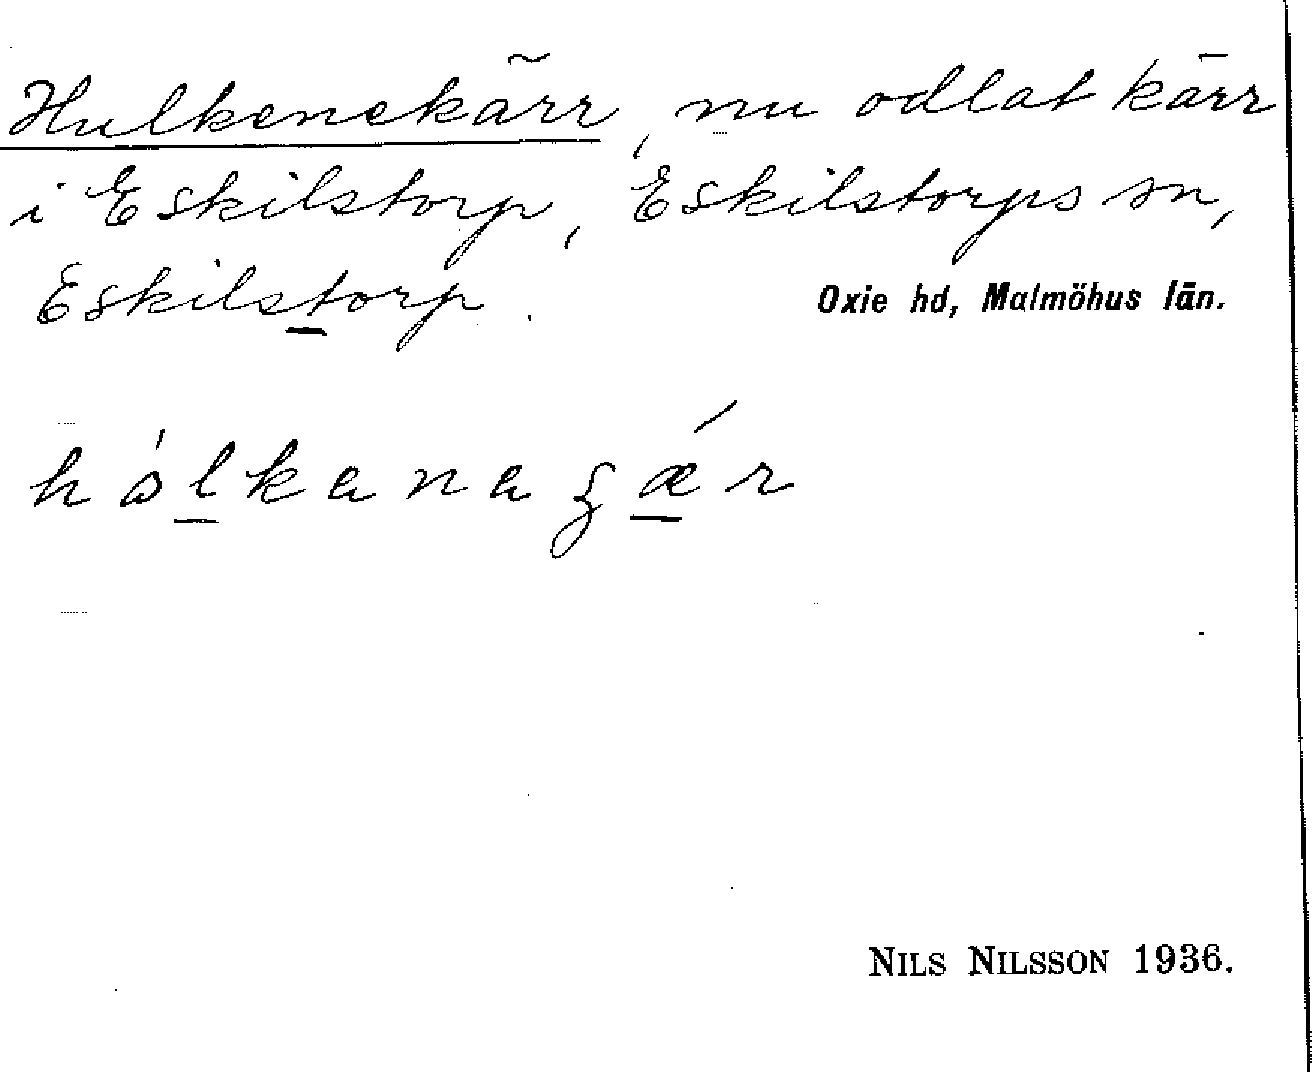 Hulkenekärr, nu odlat kärr
i Eskilstorp, Eskilstorps sn,
Eskilstorp.
Oxie hd, Malmöhus län.
NILS NILSSON 1936.